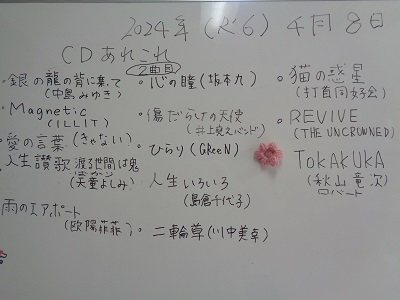 2024年(R6) 4月8日
CDあれこれ
2曲目
・銀の龍の背に乗って
(中島みゆき)
・Magnetic
(ILLIT)
・愛の言葉(きゃない)
・人生讃歌 渡る世間は鬼ばかり
(天童よしみ)
・雨のエアポート
(欧陽菲菲)
・心の瞳(坂本九)
・傷だらけの天使
(井上堯之バンド)
・ひらり(GReeeN)
・人生いろいろ
(島倉千代子)
・二輪草(川中美幸)
・猫の惑星
(打首同好会)
・REVIVE
(THE UNCROWNED)
TOKAKUKA
(秋山竜次)
ロバート